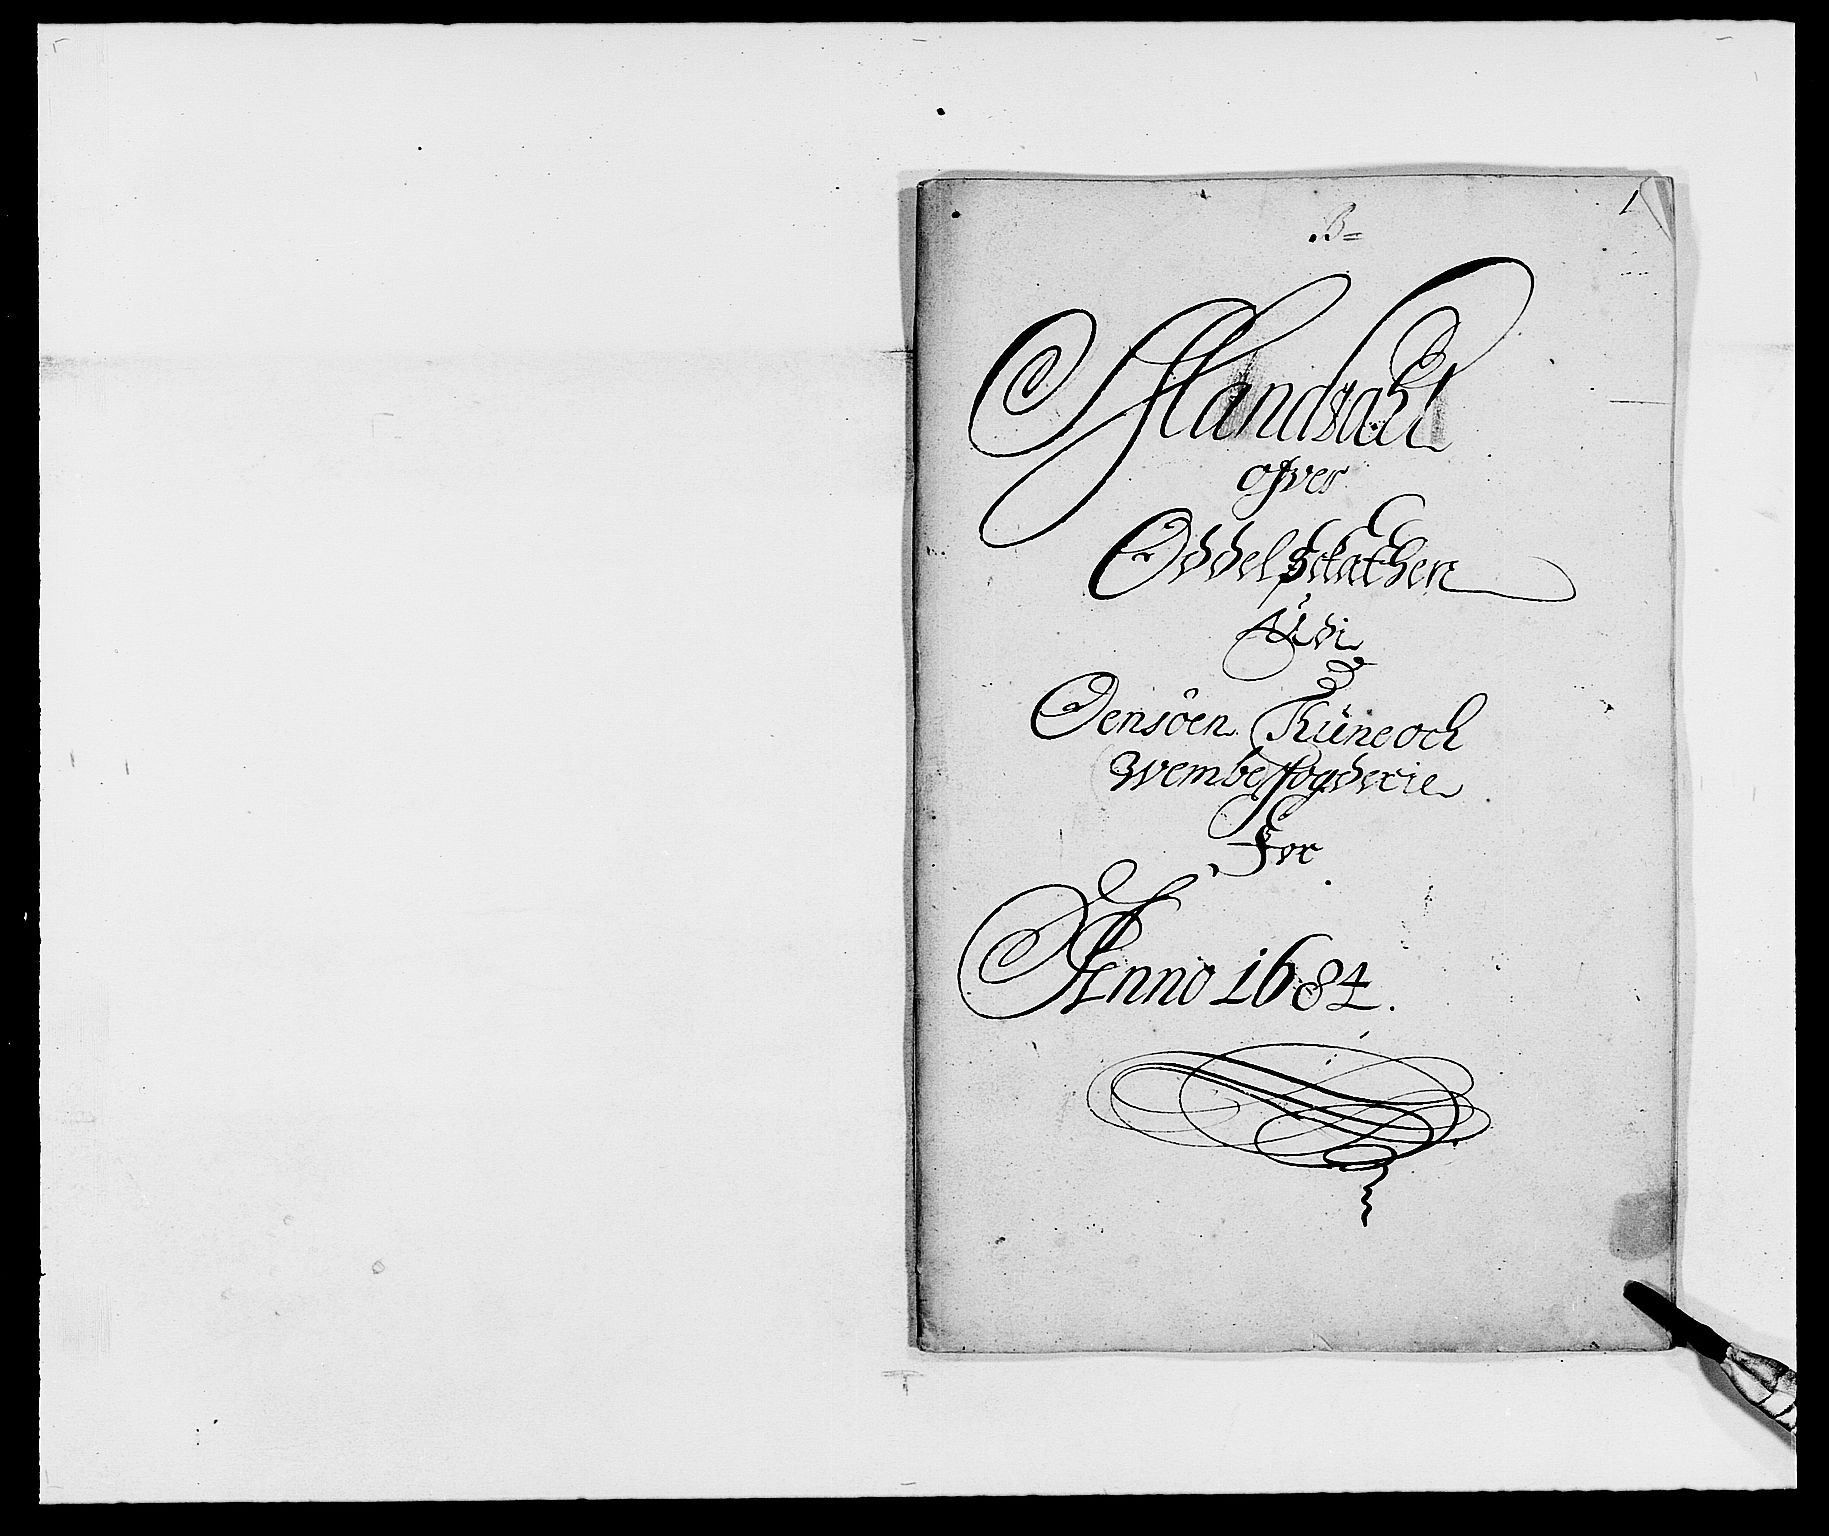 B=
1
Mandtahl
ofver
Oddelsckathen
Udi
Jensöen Thüne och
Wembe fogderie
For
Anno 1684.